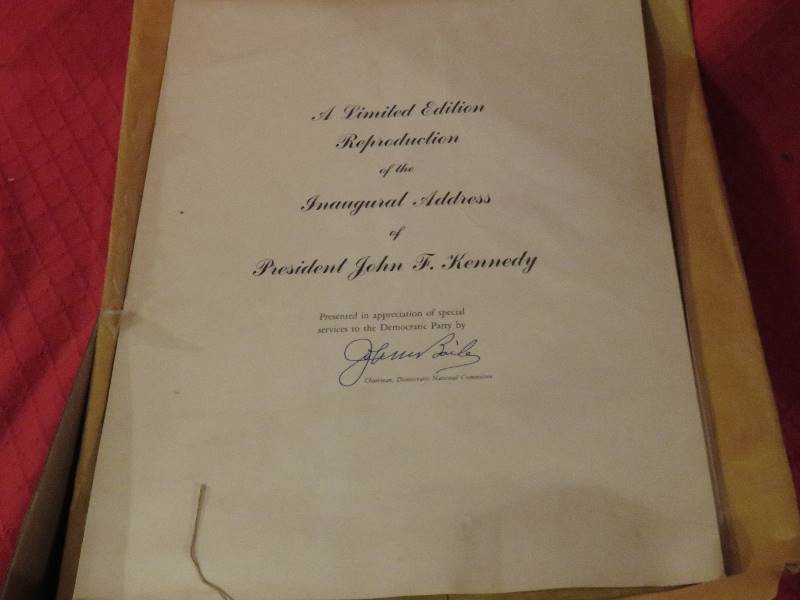 A Limited Edition
Reproduction
of the
Inaugural Address
of
President John F. Kennedy
Presented in appreciation of special
services to the Democratic Party by
John M Bailey
Chairman, Democratic National Committee